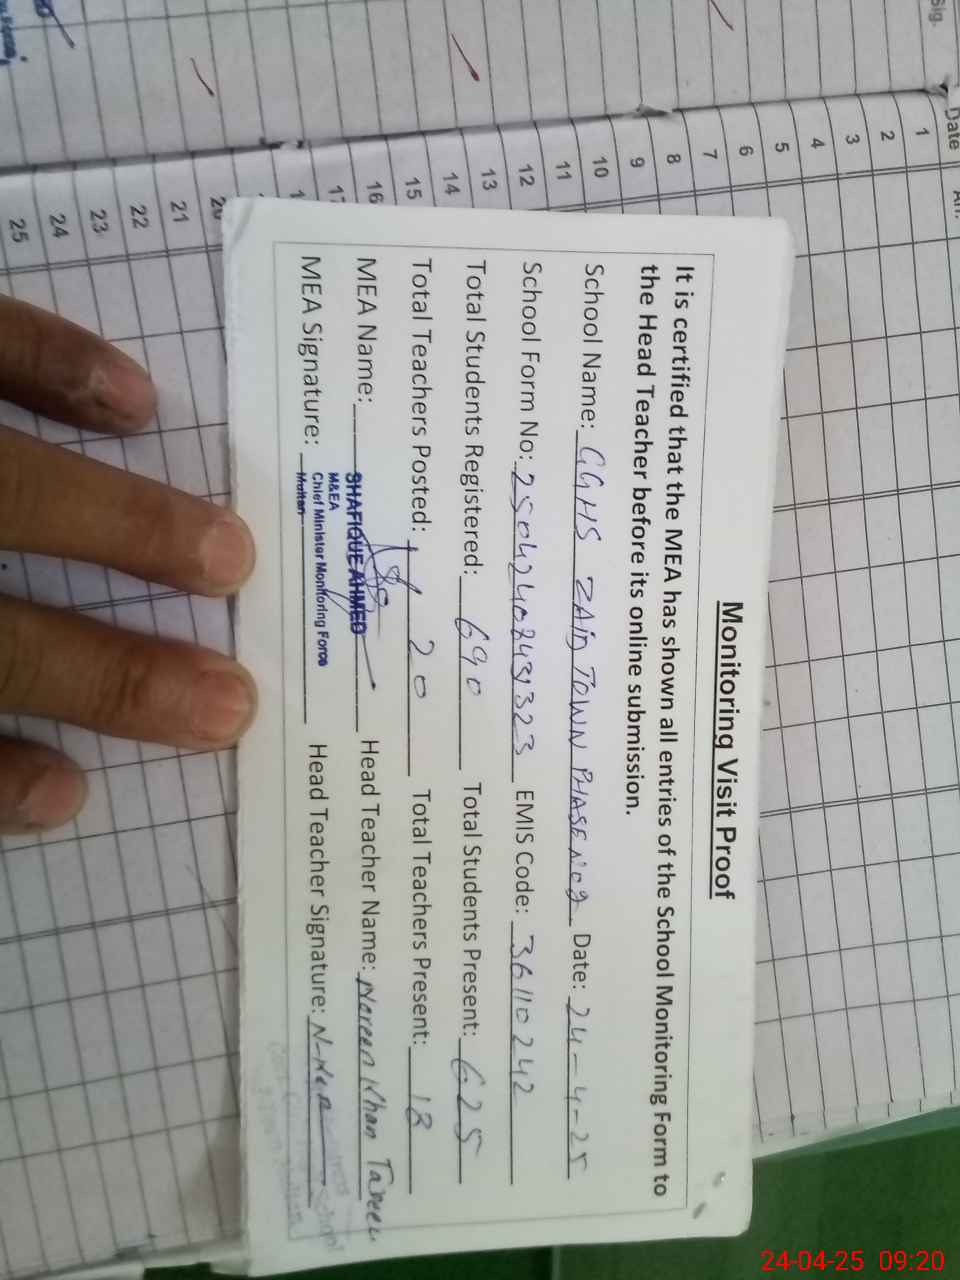 Monitoring Visit Proof
It is certified that the MEA has shown all entries of the School Monitoring Form to
the Head Teacher before its online submission.
School Name: GGHS ZAID TOWN PHASE NO2 Date: 24-4-25
School Form No: EMIS Code: 36110242
Total Students Registered: 690 Total Students Present: 625
Total Teachers Posted: 20 Total Teachers Present: 18
MEA Name: SHAFIQUE AHMED Head Teacher Name: Noreen Khan
M&EA
Chief Minister Monitoring Force
MEA Signature: Multan Head Teacher Signature:
Sig.
Date
1
2
3
4
5
6
7
8
9
10
11
12
13
14
15
16
17
20
21
22
23
24
25
24-04-25 09:20